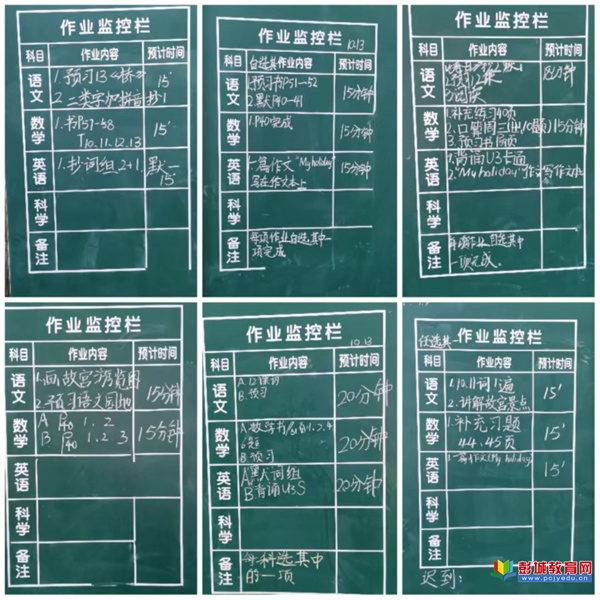 作业监控栏
科目 作业内容 预计时间
语文
1.预习13
15'
2.二类字加拼音抄1
数学
1.书P57-58
T10.11.12.13
15'
英语
1.抄词组2+1.默一
15'
科学
备注
作业监控栏
10.13
科目 自选其作业内容 预计时间
语文
1.预习书P51-52
2.默P40-41
15分钟
数学
1.P40完成
15分钟
英语
1.一篇作文"My holiday"
写在作文本上
15分钟
科学
备注
每项作业自选其中一
项完成
作业监控栏
科目 作业内容 预计时间
语文
2.预习12课
3.阅读
数学
1.补充练习40页
15分钟
3.预习书
英语
1.背诵U3卡通
2."My holiday"作文写作文本
科学
备注
每项作业自选其中
一项完成。
作业监控栏
科目 作业内容 预计时间
语文
1.画故宫游览图
2.预习语文园地
15分钟
数学
A P40 1.2
B P40 1.2 3
15分钟
英语
科学
备注
作业监控栏
10.13
科目 作业内容 预计时间
语文
A.12课词
B.预习
20分钟
数学
A.数学书
B.预习
20分钟
英语
A默词组
B背诵U3S
20分钟
科学
备注
每科选其中
的一项
任选其一 作业监控栏
科目 作业内容 预计时间
语文
1.10.11词1遍
2.讲解故宫景点
15'
数学
1.补充习题
44.45页
15'
英语
1.一篇作文(My holiday)
15'
科学
备注
迟到:
彭城教育网
www.pcjyedu.cn